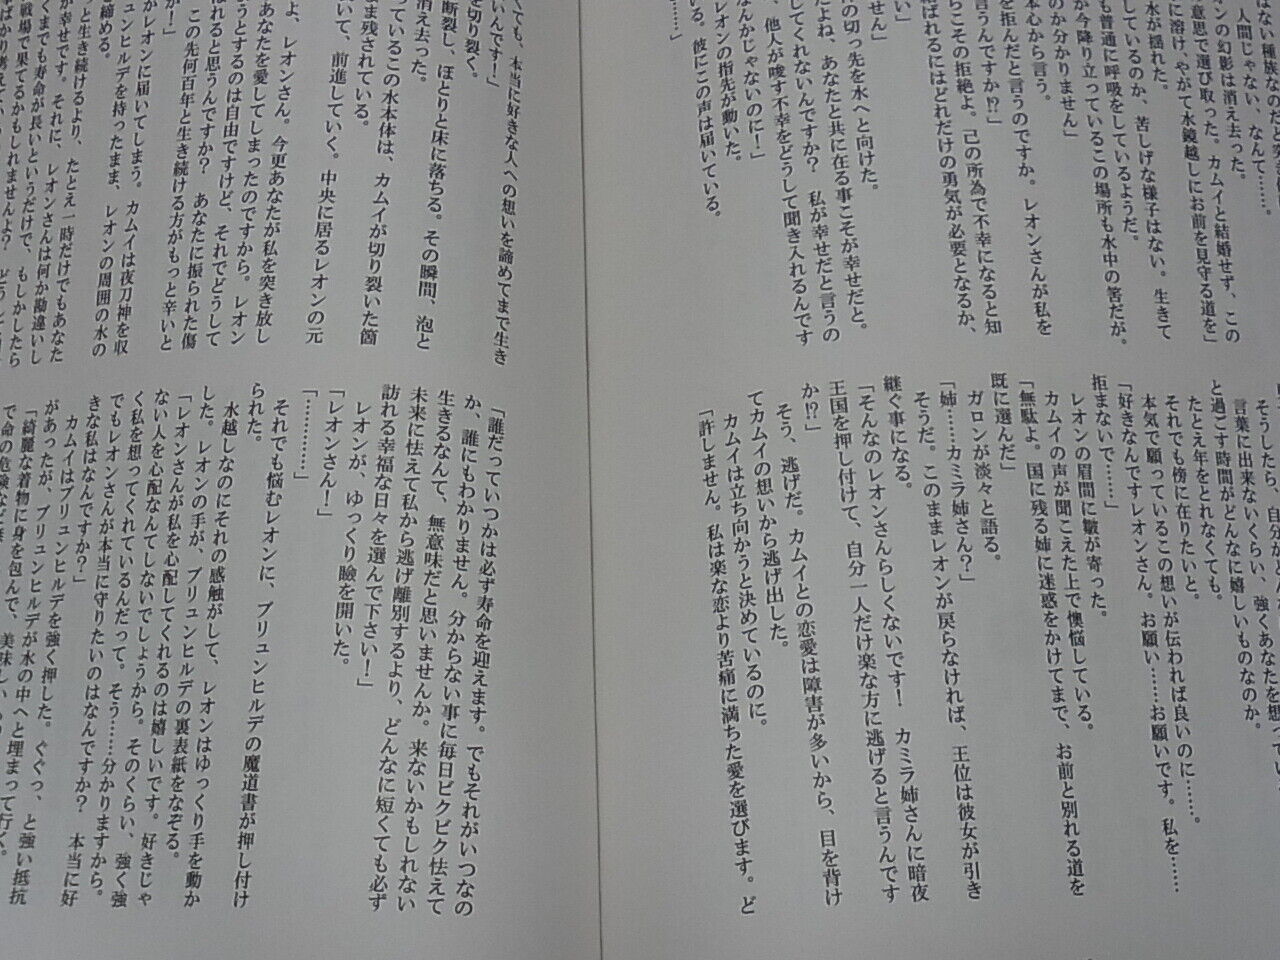 人間じゃない、なんて……。
オンの幻影は消え去った。カムイと結婚せず、この
意思で選び取った。カムイ
に溶け、やがて水鏡越しにお前を見守る道を」
水が揺れた。
しているのか、苦しげな様子はない。生きて
も普通に呼吸をしているようだ。
が今降り立っているこの場所も水中の筈だが。
のか分かりません」
本心から言う。
を拒んだと言うのですか。レオンさんが私を
言うんですか!?」
らこその拒絶よ。己の所為で不幸になると知
結ばれるにはどれだけの勇気が必要となるか、
ません」
の切っ先を水へと向けた。
たよね、あなたと共に在る事こそが幸せだと。
してくれないんですか? 私が幸せだと言うの
、他人が唆す不幸をどうして聞き入れるんです
なんかじゃないのに!」
レオンの指先が動いた。
いる。彼にこの声は届いている。
……」
言葉に出来ないくらい、強くあなたを想ってい
と過ごす時間がどんなに嬉しいものなのか。
たとえ年をとれなくても。
それでも傍に在りたいと。
本気で願っているこの想いが伝われば良いのに……。
「好きなんですレオンさん。お願い……お願いです。私を……
拒まないで……」
レオンの眉間に皺が寄った。
カムイの声が聞こえた上で懊悩している。
「無駄よ。国に残る姉に迷惑をかけてまで、お前と別れる道を
既に選んだ」
ガロンが淡々と語る。
「姉……カミラ姉さん?」
そうだ。このままレオンが戻らなければ、王位は彼女が引き
継ぐ事になる。
「そんなのレオンさんらしくないです! カミラ姉さんに暗夜
王国を押し付けて、自分一人だけ楽な方に逃げると言うんです
か!?」
そう、逃げだ。カムイとの恋愛は障害が多いから、目を背け
てカムイの想いから逃げ出した。
カムイは立ち向かうと決めているのに。
「許しません。私は楽な恋より苦痛に満ちた愛を選びます。ど
くても、本当に好きな人への想いを諦めてまで生き
いんです!」
を切り裂く。
断裂し、ぼとりと床に落ちる。その瞬間、泡と
消え去った。
っているこの水本体は、カムイが切り裂いた箇
ま残されている。
いて、前進していく。中央に居るレオンの元
よ、レオンさん。今更あなたが私を突き放し
あなたを愛してしまったのですから。レオン
ようとするのは自由ですけど、それでどうして
ばれると思うんですか? あなたに振られた傷
、この先何百年と生き続ける方がもっと辛いと
か!」
がレオンに届いてしまう。カムイは夜刀神を収
ュンヒルデを持ったまま、レオンの周囲の水の
締める。
っと生き続けるより、たとえ一時だけでもあなた
が幸せです。それに、レオンさんは何か勘違いし
くまでも寿命が長いというだけで、もしかしたら
戦場で果てるかもしれませんよ?
「誰だっていつかは必ず寿命を迎えます。でもそれがいつなの
か、誰にもわかりません。分からない事に毎日ビクビク怯えて
生きるなんて、無意味だと思いませんか。来ないかもしれない
未来に怯えて私から逃げ離別するより、どんなに短くても必ず
訪れる幸福な日々を選んで下さい!」
レオンが、ゆっくり瞼を開いた。
「レオンさん!」
「…………」
それでも悩むレオンに、ブリュンヒルデの魔道書が押し付け
られた。
水越しなのにそれの感触がして、レオンはゆっくり手を動か
した。レオンの手が、ブリュンヒルデの裏表紙をなぞる。
「レオンさんが私を心配してくれるのは嬉しいです。好きじゃ
ない人を心配なんてしないでしょうから。そのくらい、強く強
く私を想ってくれているんだって。そう……分かりますから。
でもレオンさんが本当に守りたいのはなんですか? 本当に好
きな私はなんですか?」
カムイはブリュンヒルデを強く押した。ぐぐっ、と強い抵抗
があったが、ブリュンヒルデが水の中へと埋まって行く。
「綺麗な着物に身を包んで、美味しい
で命の危険など